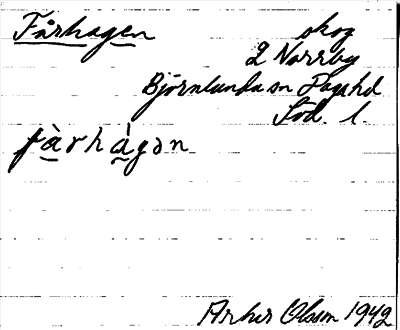 Fårhagen skog
2 Norrby
Björnlunda sn Daga hd
Söd. l.
fàrhágən
Arher Olsson 1942